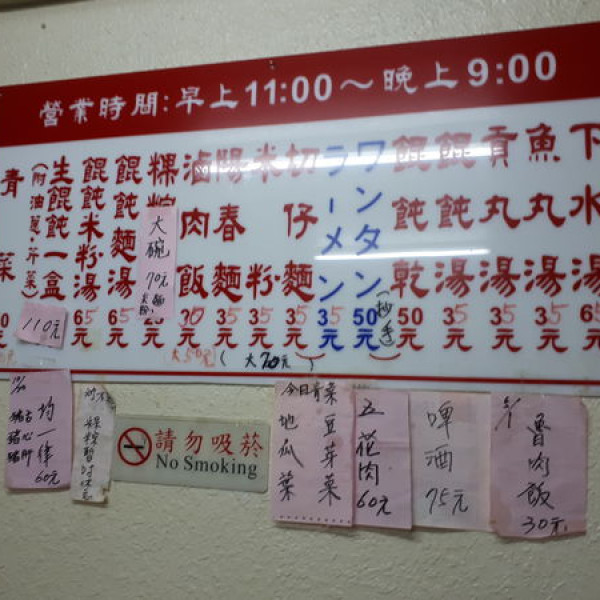 營業時間:早上11:00～晚上9:00
下水湯 65元
魚丸湯 35元
貢丸湯 35元
餛飩湯 50元
餛飩乾 50元
(抄手)
ワンタン 50元
ラーメン 35元
切仔麵 35元
米粉 35元
陽春麵 35元
滷肉飯 30元
粿粽
餛飩麵湯 65元
餛飩米粉湯 65元
生餛飩一盒
(附油蔥.芹菜)
110元
青菜
大碗
70元
大50元
(大70元)
均一律
60元
請勿吸菸
No Smoking
今日青菜
豆芽菜
地瓜葉
五花肉
60元
啤酒
75元
5/1
魯肉飯
30元